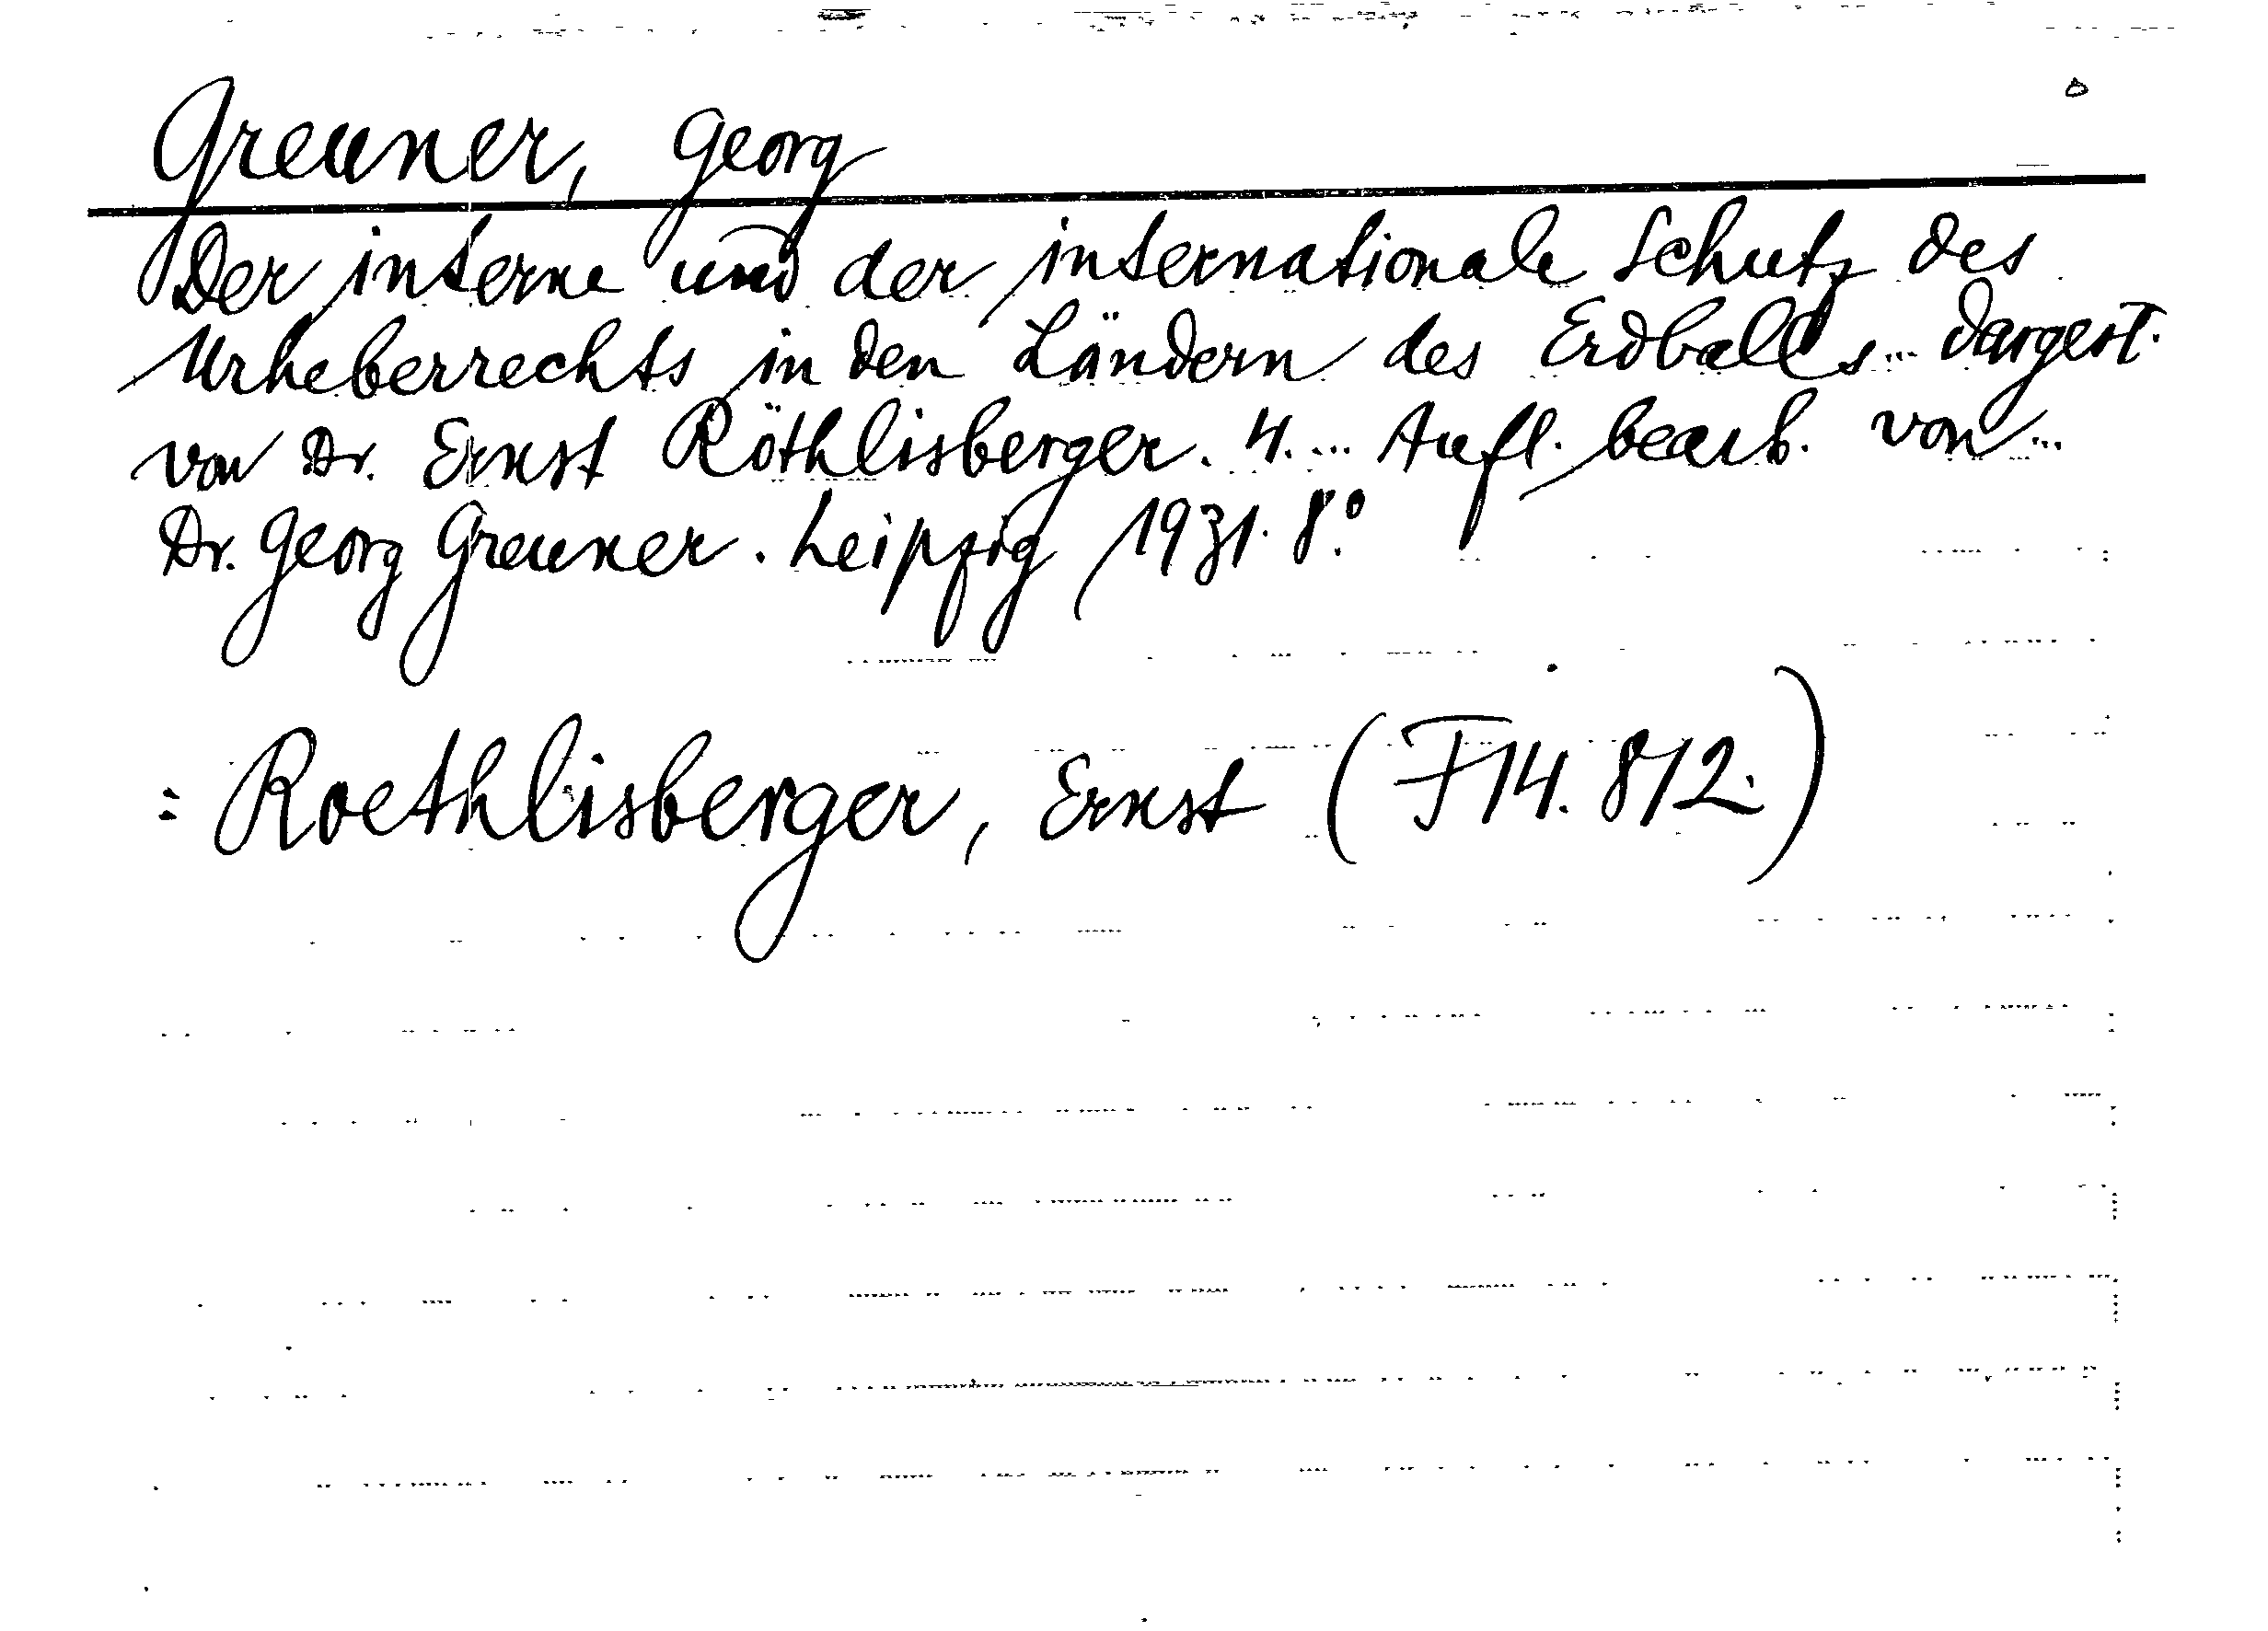 Greuner, Georg
Der interne und der internationale Schutz des
Urheberrechts in den Ländern des Erdballs... dargest.
von Dr. Ernst Röthlisberger. 4. ... Aufl. bearb. von...
Dr. Georg Greuner. Leipzig, 1931. 8°.
= Roethlisberger, Ernst (F 14.812.)